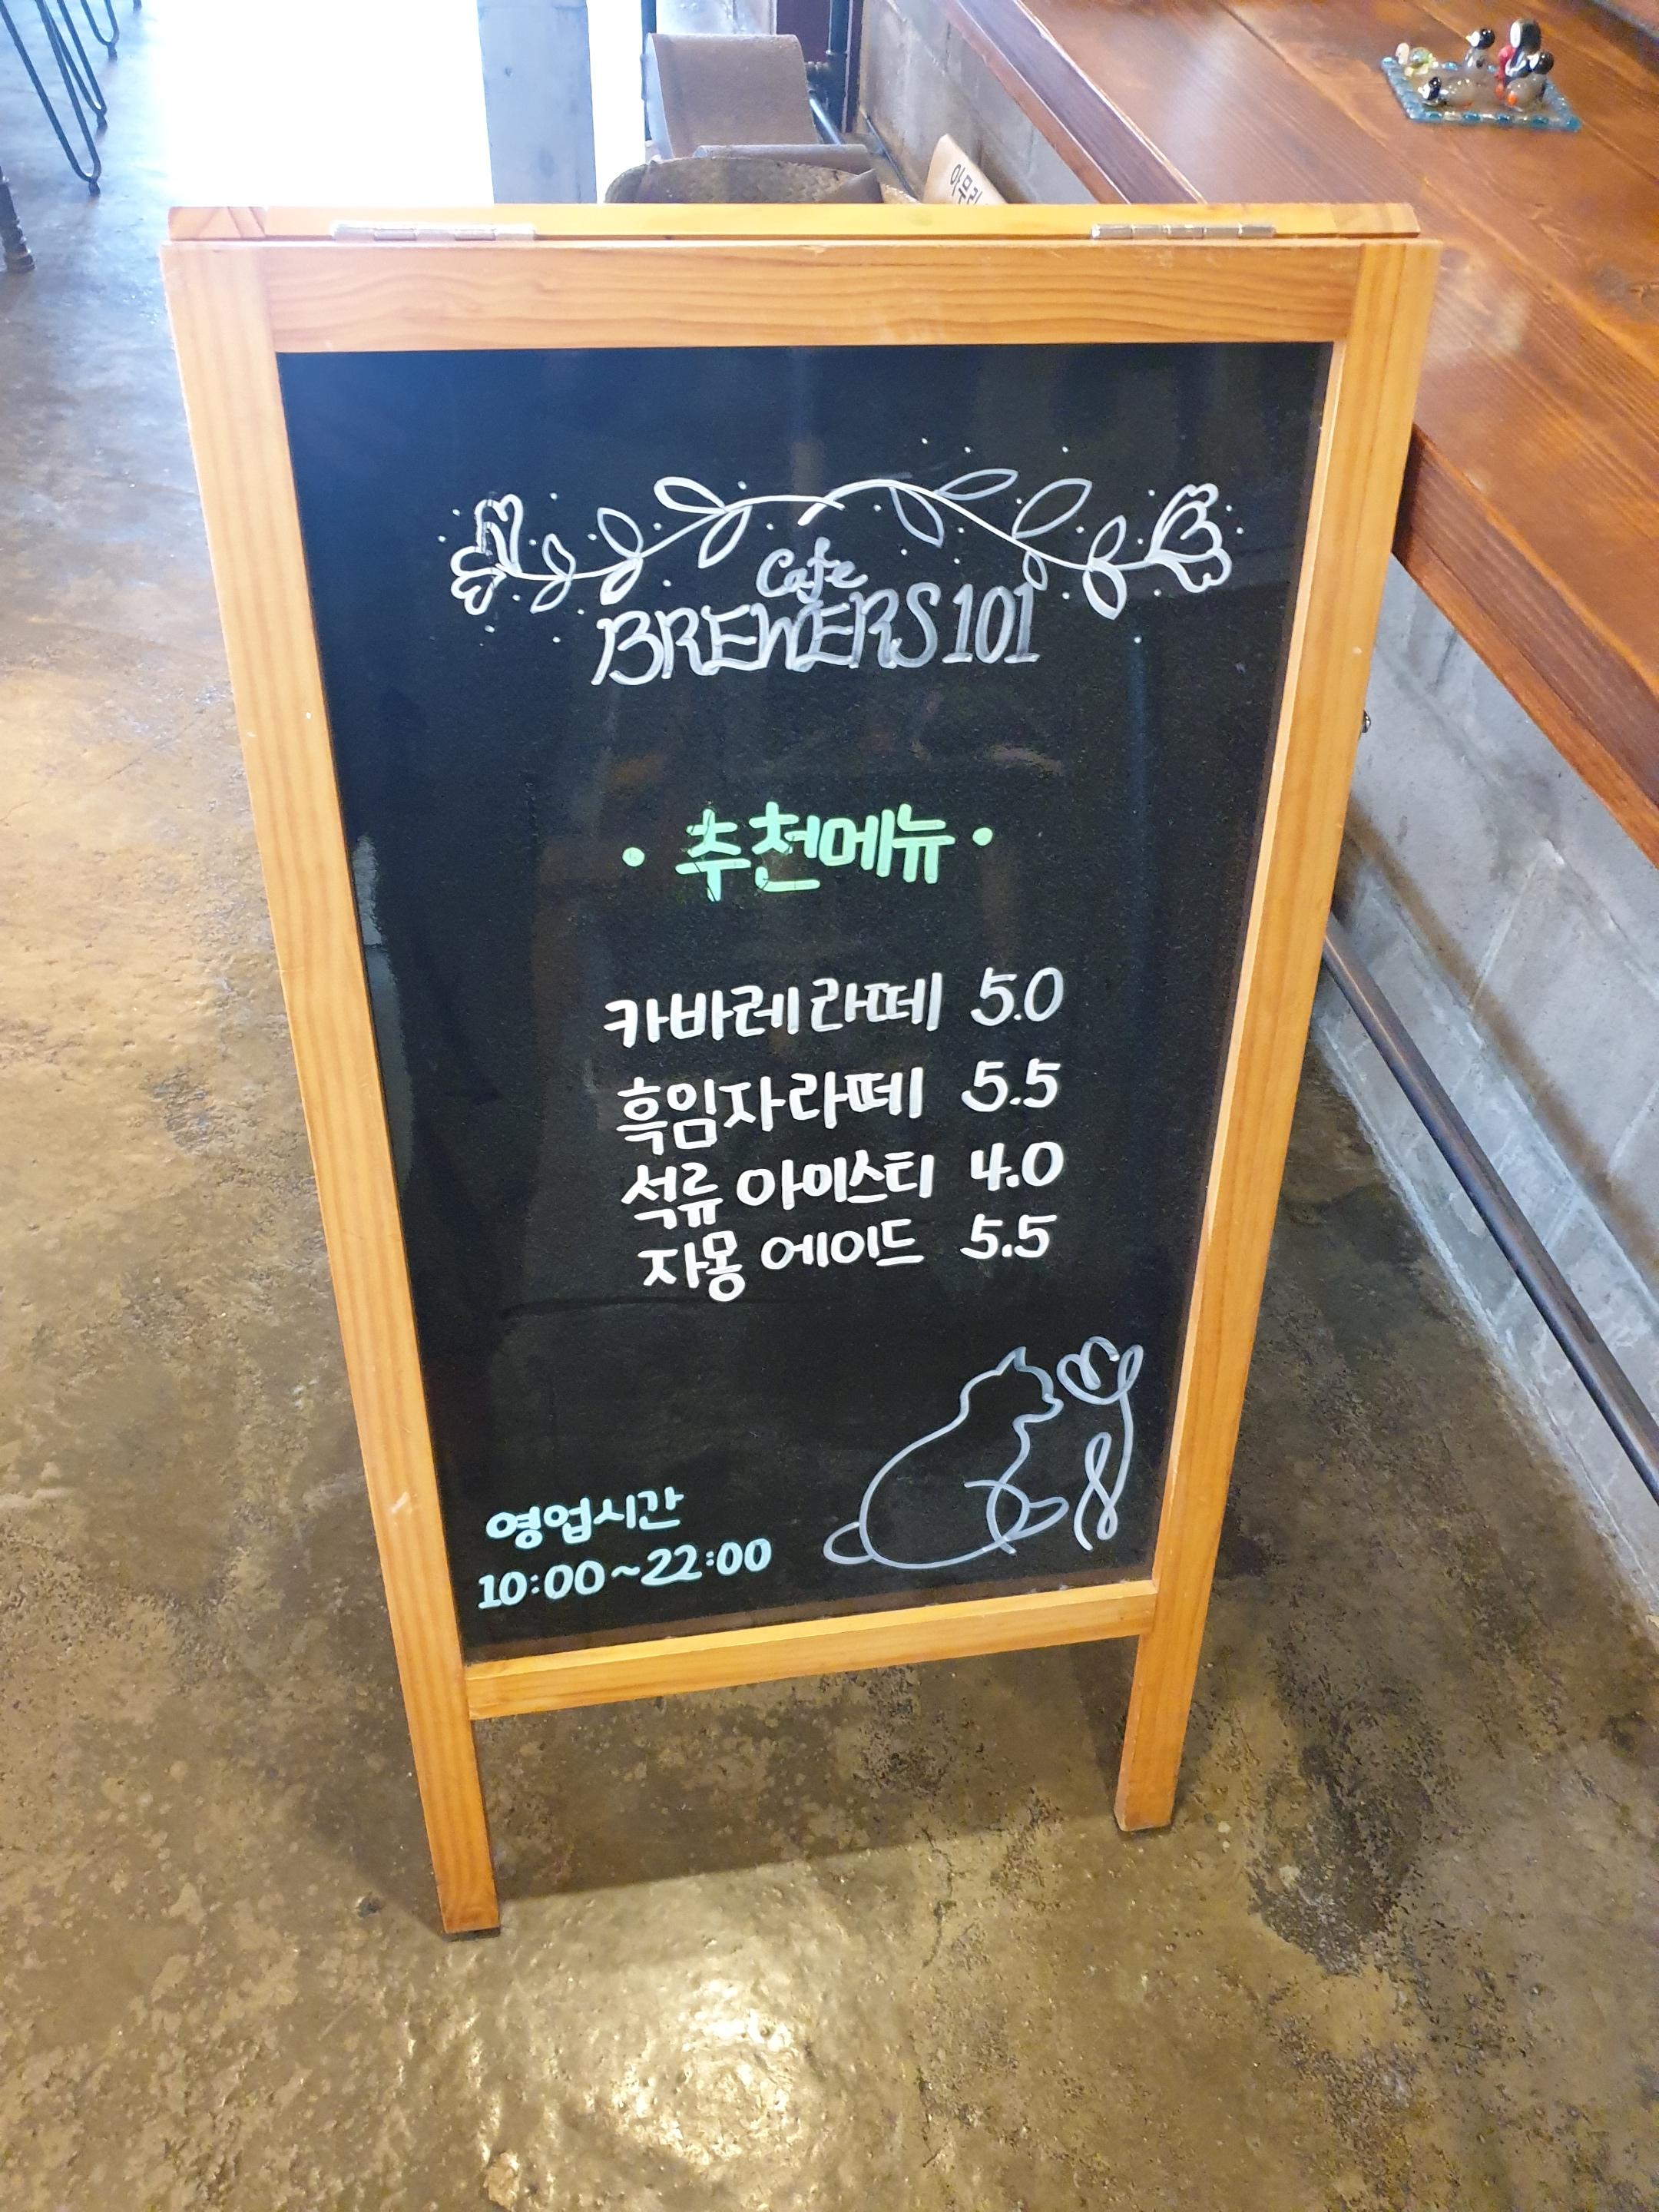 Cafe
BREWERS 101
· 추천메뉴 ·
카바레라떼 5.0
흑임자라떼 5.5
석류 아이스티 4.0
자몽 에이드 5.5
영업시간
10:00~22:00